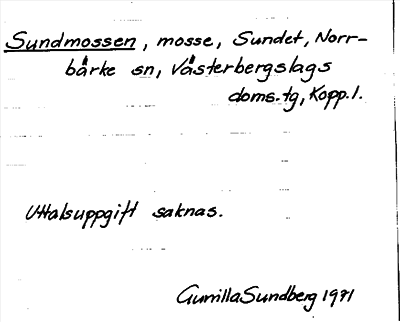 Sundmossen, mosse, Sundet, Norr-
bärke sn, Västerbergslags
doms.tg, Kopp.l.
Uttalsuppgift saknas.
Gunilla Sundberg 1971